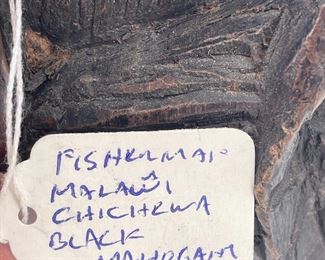 FISHERMAN
MALAWI
CHICHEWA
BLACK
MAHOGANY